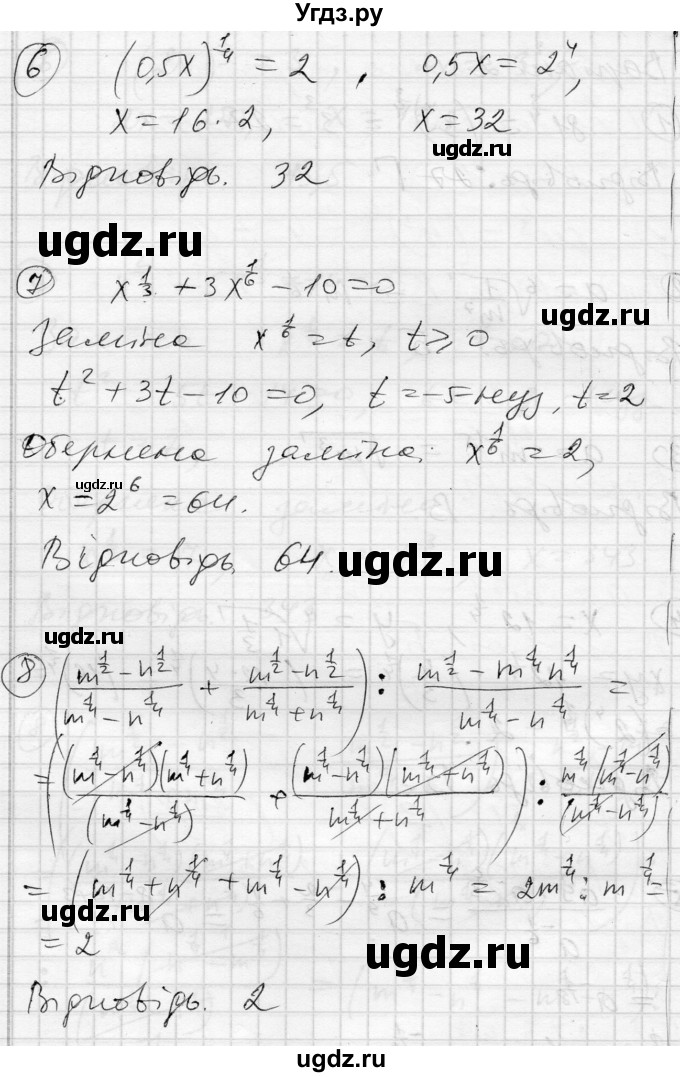 Угдз.ру
6 (0,5x)^{1/4} = 2 , 0,5x = 2^4,
x = 16 · 2, x = 32
ugdz.ru
Відповідь. 32
ugdz.ru
7 x^{1/3} + 3x^{1/6} - 10 = 0
ugdz.ru
Заміна x^{1/6} = t, t ⩾ 0
t^2 + 3t - 10 = 0, t = -5 - не уз, t = 2
Обернена заміна: x^{1/6} = 2,
ugdz.ru
x = 2^6 = 64.
Відповідь. 64.
ugdz.ru
ugdz.ru
8 ((m^{1/2} - n^{1/2})/(m^{1/4} - n^{1/4}) + (m^{1/2} - n^{1/2})/(m^{1/4} + n^{1/4})) : (m^{1/2} - m^{1/4} n^{1/4})/(m^{1/4} - n^{1/4}) =
= ((m^{1/4} - n^{1/4})(m^{1/4} + n^{1/4})/(m^{1/4} - n^{1/4}) + (m^{1/4} - n^{1/4})(m^{1/4} + n^{1/4})/(m^{1/4} + n^{1/4})) : m^{1/4}(m^{1/4} - n^{1/4})/(m^{1/4} - n^{1/4})
= (m^{1/4} + n^{1/4} + m^{1/4} - n^{1/4}) : m^{1/4} = 2m^{1/4} : m^{1/4} =
ugdz.ru
= 2
ugdz.ru
Відповідь. 2
ugdz.ru